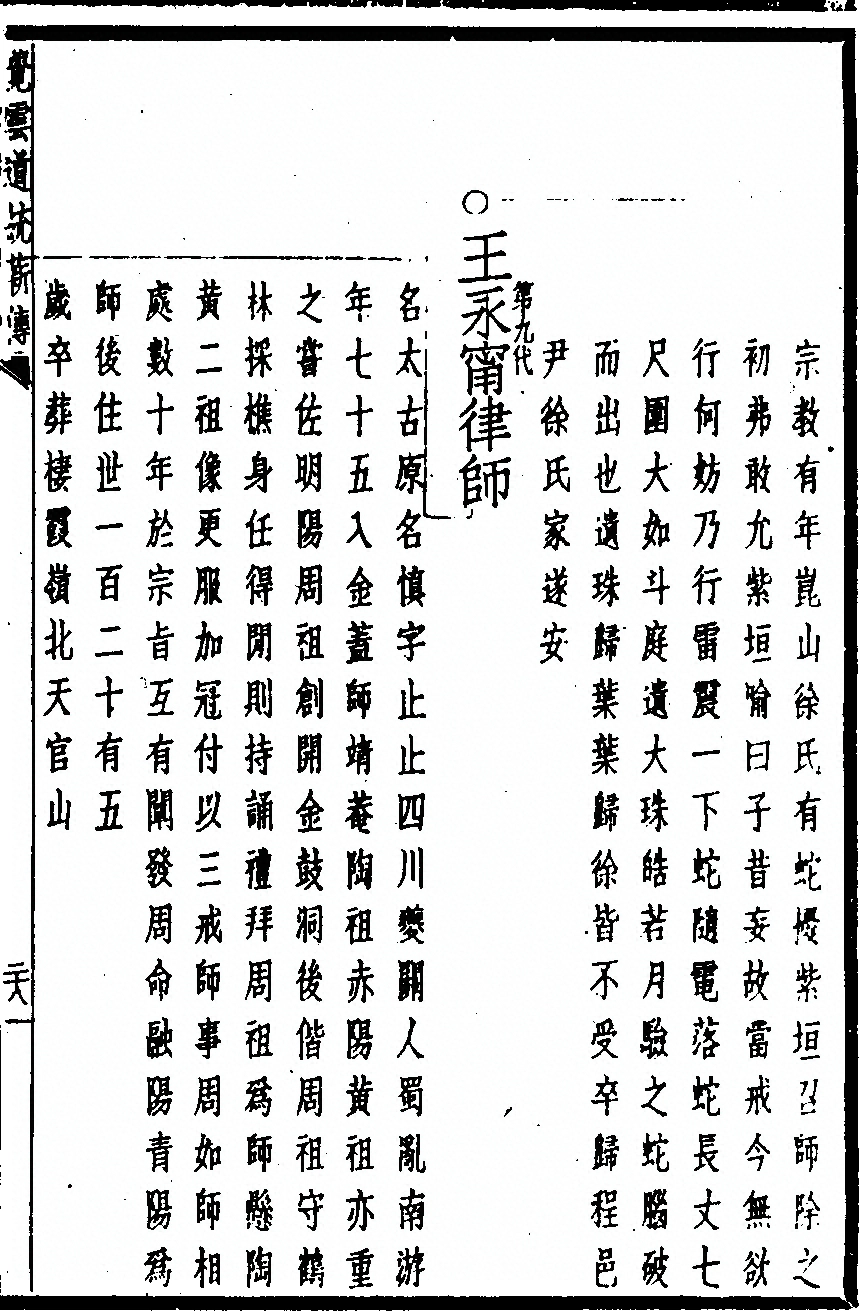 宗教有年崑山徐氏有蛇擾紫垣召師除之
初弗敢允紫垣喻曰子昔妄故當戒今無欲
行何妨乃行雷震一下蛇隨電落蛇長丈七
尺圍大如斗庭遺大珠皓若月驗之蛇腦破
而出也遺珠歸葉葉歸徐皆不受卒歸程邑
尹徐氏家遂安
第九代
○王永甯律師
名太古原名慎字止止四川夔關人蜀亂南游
年七十五入金蓋師靖菴陶祖赤陽黃祖亦重
之嘗佐明陽周祖創開金鼓洞後偕周祖守鶴
林採樵身任得閒則持誦禮拜周祖爲師懸陶
黃二祖像更服加冠付以三戒師事周如師相
處數十年於宗旨互有闡發周命融陽青陽爲
師後住世一百二十有五
歲卒葬棲霞嶺北天官山
覺雲道統薪傳
二八